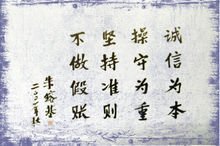 诚信为本
操守为重
坚持准则
不做假账
朱镕基
二〇〇一年社